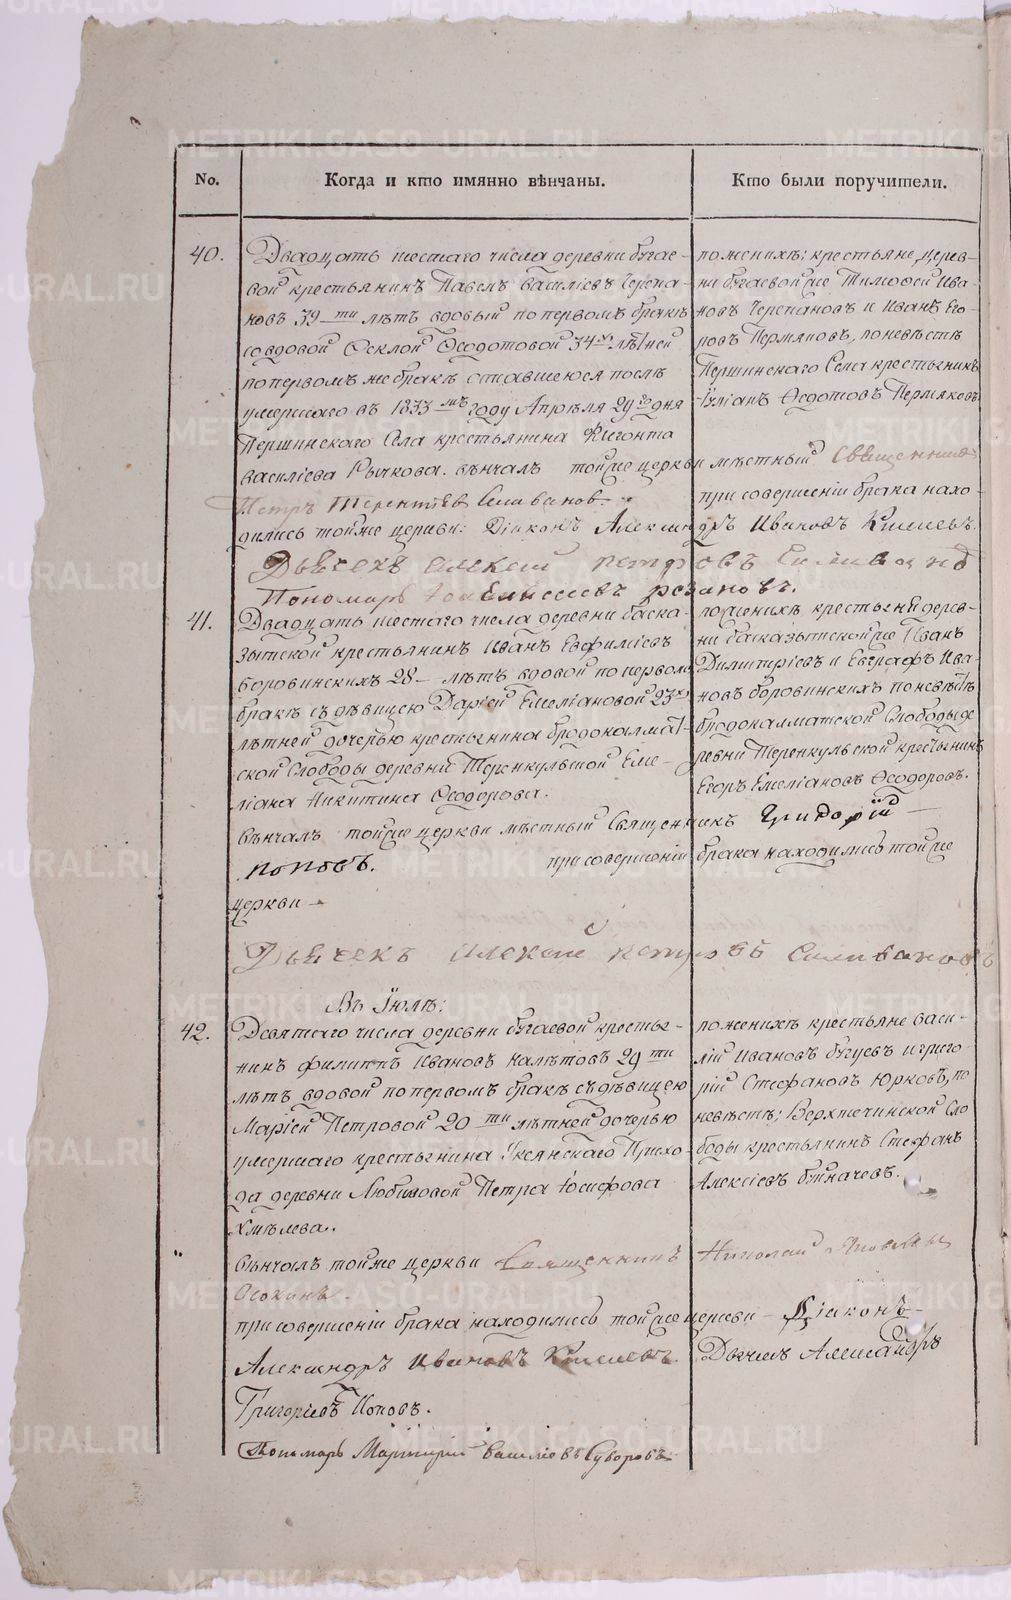 No.
Когда и кто имянно вѣнчаны.
Кто были поручители.
40.
Двадцать шестаго числа деревни Бугае-
вой крестьянинъ Павелъ Василіевъ Черепа-
новъ 39-ти лѣтъ вдовый по первомъ бракѣ
со вдовой Ѳеклой Ѳеодотовой 34хъ лѣтней
по первомъ же бракѣ оставшеюся послѣ
умершаго въ 1833мъ году Апрѣля 29го дня
Першинскаго Села крестьянина
Василіева Рычкова. вѣнчалъ тойже церкви мѣстный Священникъ
Петръ Терентіевъ Селивановъ.
при совершеніи брака нахо-
дились тойже церкви: Діаконъ Александръ Ивановъ Киселевъ.
Дьячекъ Алексей Петровъ Селивановъ
Пономарь Елисеевъ Резановъ.
по женихѣ: крестьяне, дерев-
ни Бугаевой же Тимофей Ива-
новъ Черепановъ и Иванъ Его-
ровъ Пермяковъ, по невѣстѣ
Першинскаго Села крестьянинъ
Іуліанъ Ѳедотовъ Пермяковъ
41.
Двадцать шестаго числа деревни Баска-
зытской крестьянинъ Иванъ Евфиміевъ
Боровинскихъ 28-лѣтъ вдовой по первомъ
бракѣ съ дѣвицею Даріей Емеліановой 23хъ
лѣтней дочерью крестьянина Бродокалмат-
ской Слободы деревни Теренкульской Еме-
ліана Никитина Ѳеодорова.
вѣнчалъ тойже церкви мѣстный Священникъ Григорій
Поповъ.
при совершеніи брака находились тойже
церкви
Дьячекъ Алексей Петровъ Селивановъ
по женихѣ крестьяне дерев-
ни Басказытской же Иванъ
Димитріевъ и Евграфъ Ива-
новъ Боровинскихъ по невѣстѣ
Бродокалматской Слободы де-
ревни Теренкульской крестьянинъ
Егоръ Емеліановъ Ѳеодоровъ.
Въ Іюлѣ:
42.
Девятаго числа деревни Бугаевой крестья-
нинъ Филиппъ Ивановъ Налѣтовъ 29ти
лѣтъ вдовой по первомъ бракѣ съ дѣвицею
Маріей Петровой 20ти лѣтней дочерью
умершаго крестьянина Уксянскаго Прихо-
да деревни Любимовой Петра Іосифова
Хмѣлева.
Вѣнчалъ тойже церкви Священникъ Николай Яковлевъ
Осокинъ.
при совершеніи брака находились тойже церкви - Діаконъ
Александръ Ивановъ Киселевъ. Дьячекъ Александръ
Григоріевъ Поповъ.
Пономарь Мартирій Василіевъ Суворовъ
по женихѣ крестьяне Васи-
лій Ивановъ Бугуевъ и Григо-
рій Стефановъ Юрковъ, по
невѣстѣ; Верхтечинской Сло-
боды крестьянинъ Стефанъ
Алексіевъ